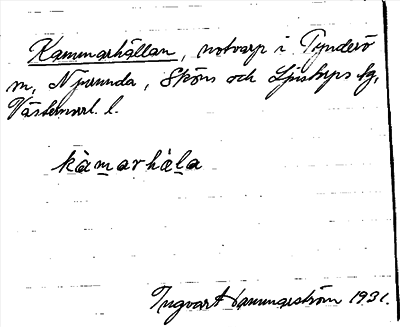 Kammarhällan, notvarp i Tynderö
m, Njurunda, Sköns och Ljustorps tg,
Västernorrl. l.
kàmarhàla
Ingvart Hammarström 1931.